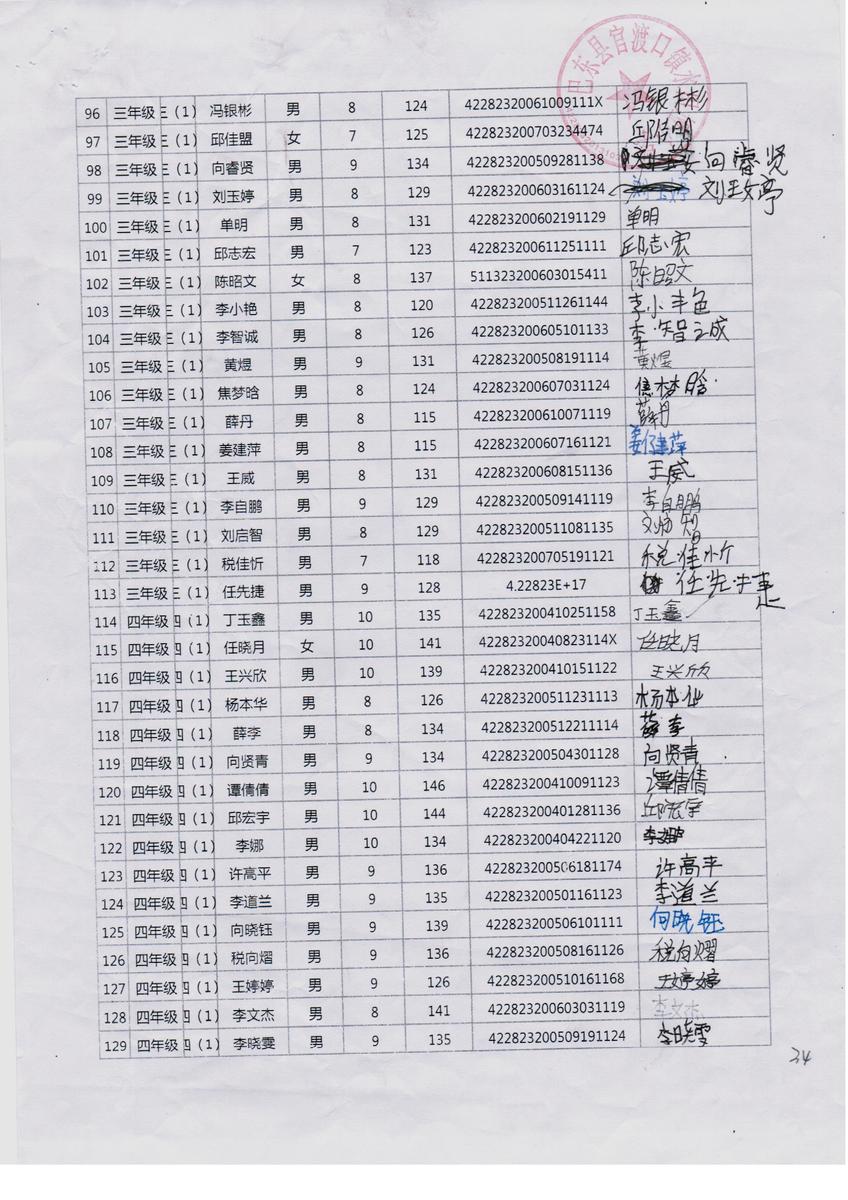 巴东县官渡口镇水
96 三年级 三（1） 冯银彬 男 8 124 42282320061009111X 冯银彬
97 三年级 三（1） 邱佳盟 女 7 125 422823200703234474
98 三年级 三（1） 向睿贤 男 9 134 422823200509281138 向睿贤
99 三年级 三（1） 刘玉婷 男 8 129 422823200603161124 刘玉婷
100 三年级 三（1） 单明 男 8 131 422823200602191129 单明
101 三年级 三（1） 邱志宏 男 7 123 422823200611251111 邱志宏
102 三年级 三（1） 陈昭文 女 8 137 511323200603015411 陈昭文
103 三年级 三（1） 李小艳 男 8 120 422823200511261144 李小艳
104 三年级 三（1） 李智诚 男 8 126 422823200605101133 李智诚
105 三年级 三（1） 黄煜 男 9 131 422823200508191114 黄煜
106 三年级 三（1） 焦梦晗 男 8 124 422823200607031124 焦梦晗
107 三年级 三（1） 薛丹 男 8 115 422823200610071119 薛丹
108 三年级 三（1） 姜建萍 男 8 115 422823200607161121 姜建萍
109 三年级 三（1） 王威 男 8 131 422823200608151136 王威
110 三年级 三（1） 李自鹏 男 9 129 422823200509141119 李自鹏
111 三年级 三（1） 刘启智 男 8 129 422823200511081135 刘启智
112 三年级 三（1） 税佳忻 男 7 118 422823200705191121 税佳忻
113 三年级 三（1） 任先捷 男 9 128 4.22823E+17 任先捷
114 四年级 四（1） 丁玉鑫 男 10 135 422823200410251158 丁玉鑫
115 四年级 四（1） 任晓月 女 10 141 42282320040823114X 任晓月
116 四年级 四（1） 王兴欣 男 10 139 422823200410151122 王兴欣
117 四年级 四（1） 杨本华 男 8 126 422823200511231113 杨本华
118 四年级 四（1） 薛李 男 8 134 422823200512211114 薛李
119 四年级 四（1） 向贤青 男 9 134 422823200504301128 向贤青
120 四年级 四（1） 谭倩倩 男 10 146 422823200410091123 谭倩倩
121 四年级 四（1） 邱宏宇 男 10 144 422823200401281136 邱宏宇
122 四年级 四（1） 李娜 男 10 134 422823200404221120 李娜
123 四年级 四（1） 许高平 男 9 136 422823200506181174 许高平
124 四年级 四（1） 李道兰 男 9 135 422823200501161123 李道兰
125 四年级 四（1） 向晓钰 男 9 139 422823200506101111 向晓钰
126 四年级 四（1） 税向熠 男 9 136 422823200508161126 税向熠
127 四年级 四（1） 王婷婷 男 9 126 422823200510161168 王婷婷
128 四年级 四（1） 李文杰 男 8 141 422823200603031119 李文杰
129 四年级 四（1） 李晓雯 男 9 135 422823200509191124 李晓雯
34